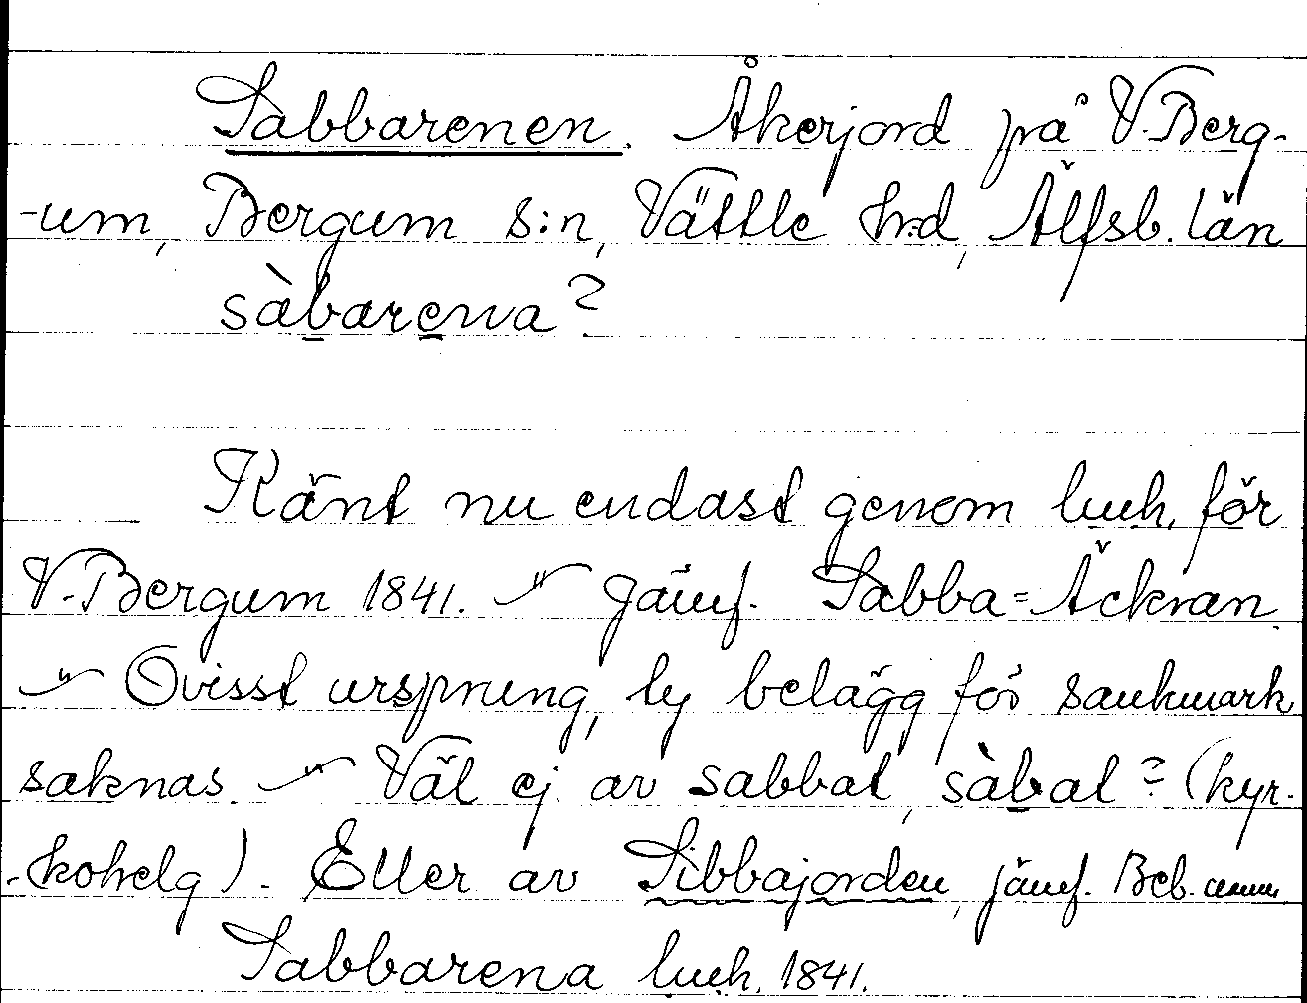 Sabbarenen. Åkerjord på V. Berg-
-um, Bergum s:n, Vättle h:d, Älfsb. län
sàbarena?
Känt nu endast genom lmh, för
V. Bergum 1841. — Jämf. Sabba=Äckran.
— Ovisst ursprung, ty belägg för sankmark
saknas. — Väl ej av sabbat, sàbat? (kyr-
-kohelg). Eller av Sibbajorden, jämf. Beb.
Sabbarena lmh. 1841.